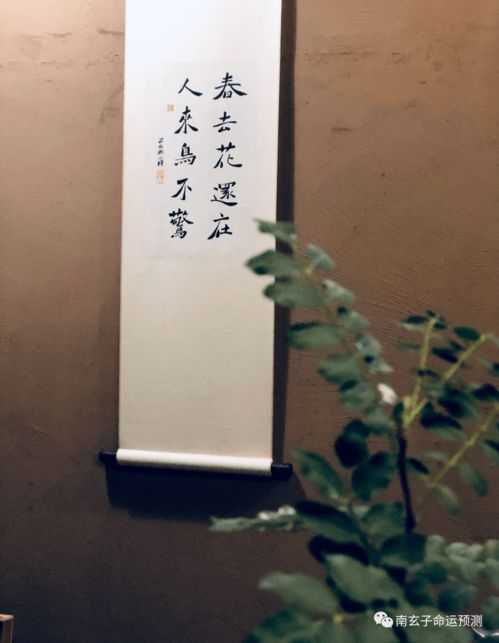 春去花還在
人來鳥不驚
南玄子命运预测